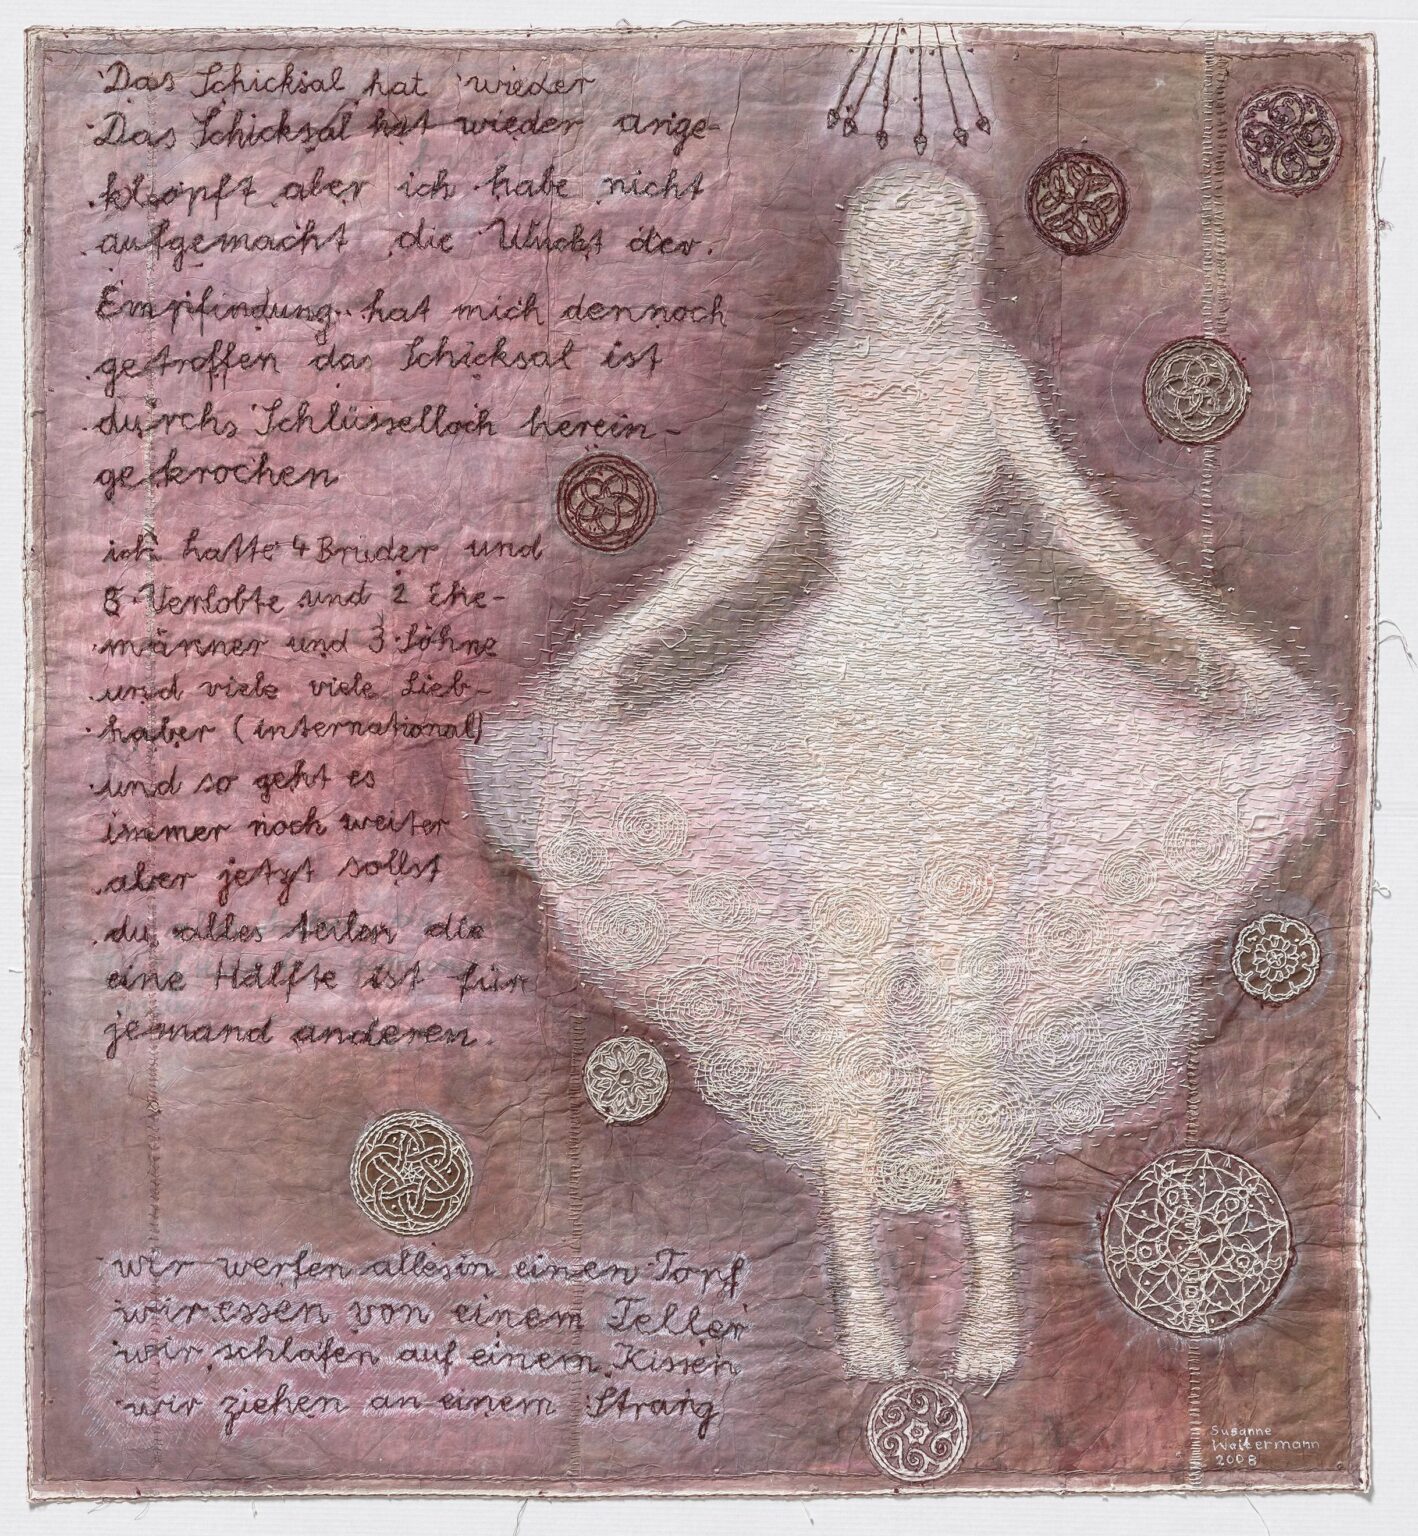 Das Schicksal hat wieder
Das Schicksal hat wieder ange-
klopft aber ich habe nicht
aufgemacht die Wucht der
Empfindung hat mich dennoch
getroffen das Schicksal ist
durchs Schlüsselloch herein-
gekrochen
ich hatte 4 Brüder und
8 Verlobte und 2 Ehe-
männer und 3 Söhne
und viele viele Lieb-
haber (international)
und so geht es
immer noch weiter
aber jetzt sollst
du alles teilen die
eine Hälfte ist für
jemand anderen.
wir werfen alles in einen Topf
wir essen von einem Teller
wir schlafen auf einem Kissen
wir ziehen an einem Strang
Susanne
Waltermann
2008